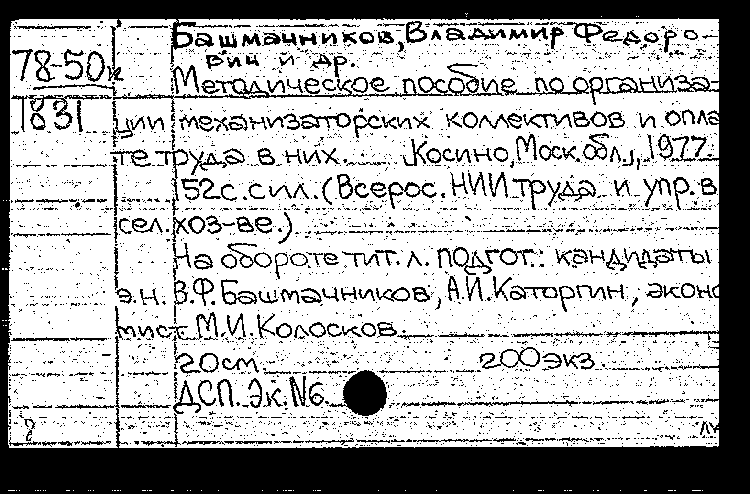 Башмачников, Владимир Федоро-
78-50к вич и др.
Методическое пособие по организа-
1831 ции механизаторских коллективов и опла
те труда в них. [Косино, Моск. обл.], 1977.
152 с. с ил. (Всерос. НИИ труда и упр. в
сел. хоз-ве.)
На обороте тит. л. подгот.: кандидаты
э.н. В.Ф. Башмачников, А.И. Каторгин, эконо
мист М.И. Колосков.
20 см. 200 экз.
ДСП. Эк. N6